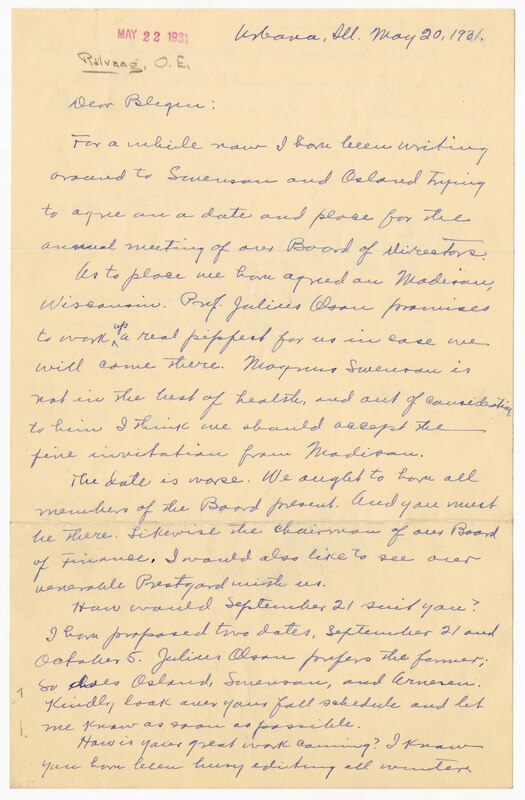 MAY 22 1931
Urbana, Ill. May 20, 1931.
Rölvaag, O. E.
Dear Blegen:
For a while now I have been writing
around to Swenson and Osland trying
to agree on a date and place for the
annual meeting of our Board of Directors.
As to place we have agreed on Madison,
Wisconsin. Prof. Julius Olson promises
to work up a real pepfest for us in case we
will come there. Magnus Swenson is
not in the best of health, and out of consideration
to him I think we should accept the
fine invitation from Madison.
The date is worse. We ought to have all
members of the Board present. And you must
be there. Likewise the chairman of our Board
of Finance. I would also like to see our
venerable Prestgard with us.
How would September 21 suit you?
I have proposed two dates, September 21 and
October 5. Julius Olson prefers the former;
so does Osland, Swenson, and Arnesen.
Kindly, look over your fall schedule and let
me know as soon as possible.
How is your great work coming? I know
you have been busy editing all winter.